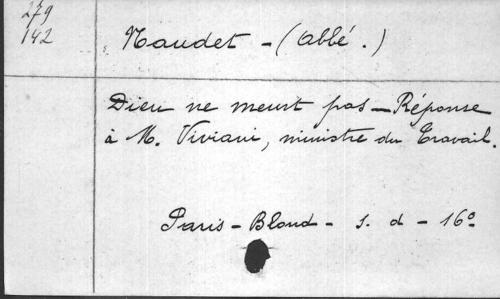 279
142
Naudet - (Abbé.)
Dieu ne meurt pas - Réponse
à M. Viviani, ministre du Travail.
Paris - Bloud - s. d - 16°